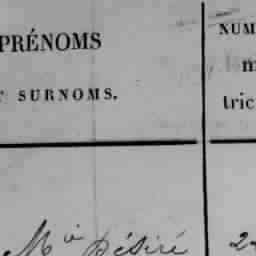 PRÉNOMS
T SURNOMS.
NUM
m
tric
Mia Désiré 2